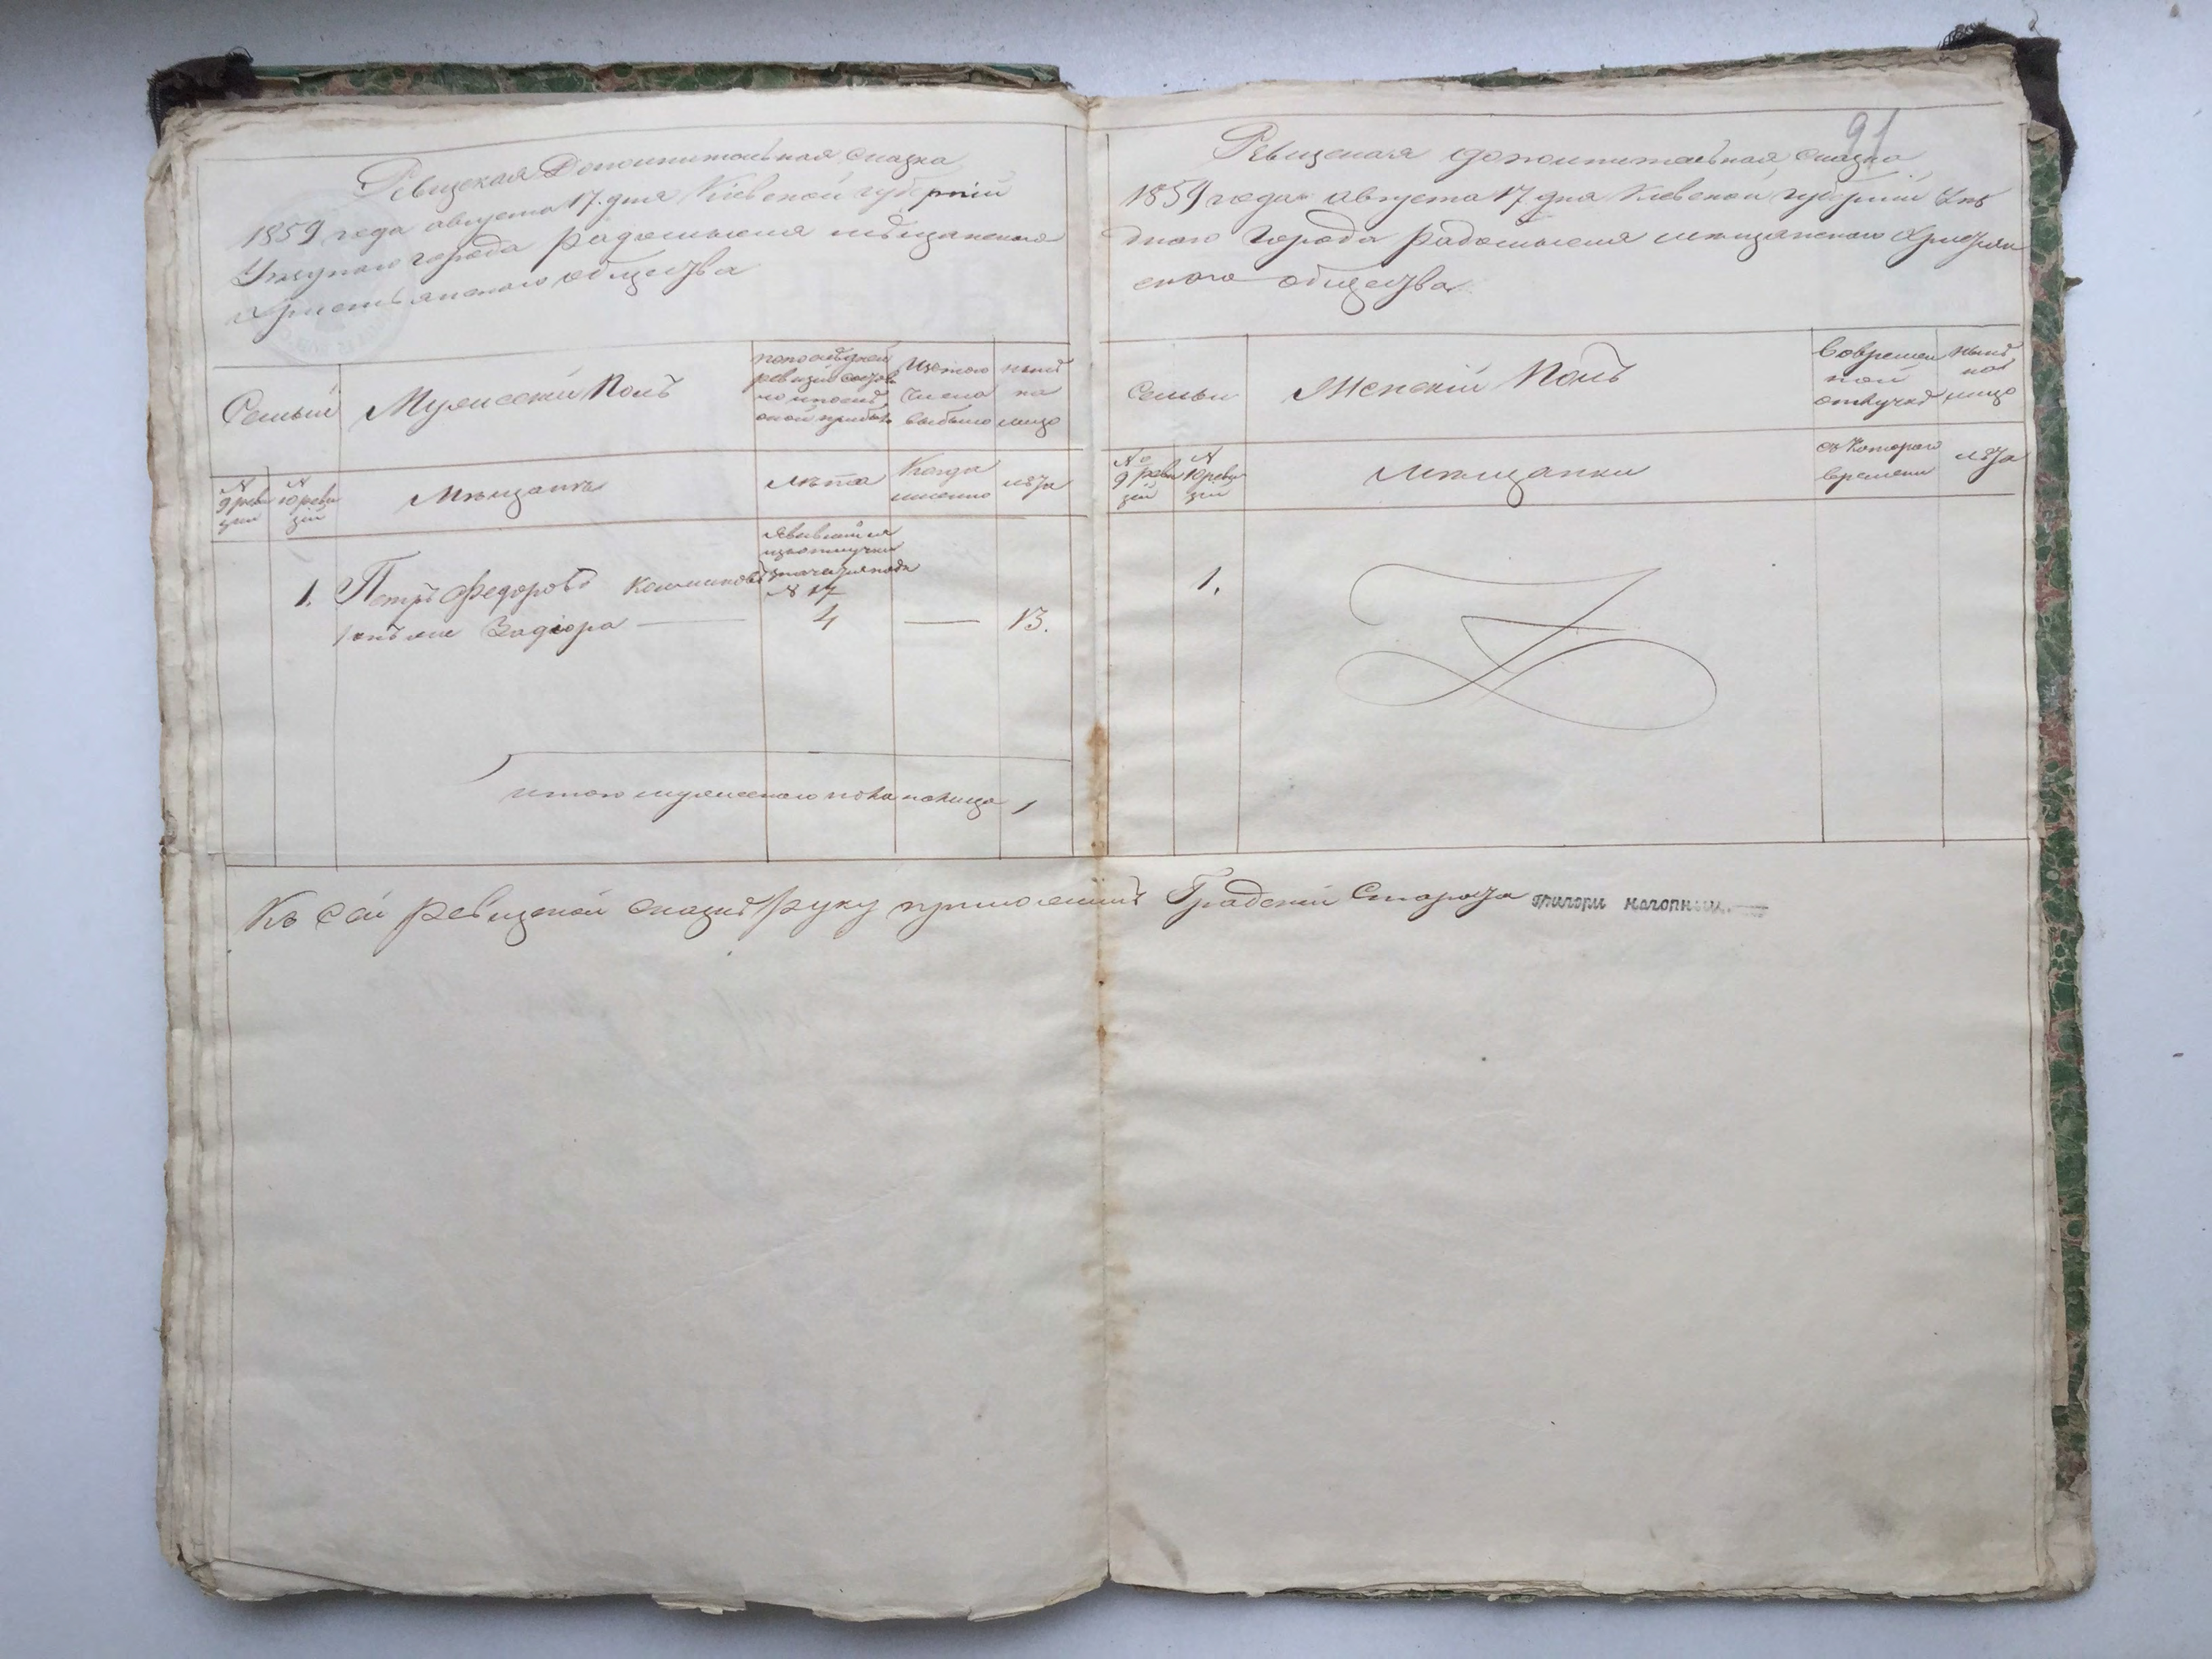 Ревизская Дополнительная сказка
1859 года августа 17. дня Кіевской губерніи
Уѣзднаго города Радомысля мѣщанского
христіянского общества
Семьи
Мужеский Полъ
По последней
ревизіи состоя
ло и после
оной прибыло
Изъ того
числа
выбыло
нынѣ
на
лицо
№
9 реви
зіи
№
10 реви
зіи
Мѣщанъ
Лѣта
Когда
именно
лѣта
1.
Петръ Федоровъ
онъ же Задіора
Явившійся
изъ отлучки
№ 17
4
13.
итого мужеского пола налицо 1
91
Ревизская дополнительная сказка
1859 года августа 17 дня Кіевской губерніи Уѣз
дного города Радомысля мѣщанского Христіян
ского общества
Семьи
Женскій Полъ
Во времен
ной
отлучкѣ
нынѣ
на
лицо
№
9 реви
зіи
№
10 реви
зіи
Мѣщанки
съ Котораго
времени
лѣта
1.
Къ сей ревизской сказкѣ руку приложилъ Градскій Староста Григори